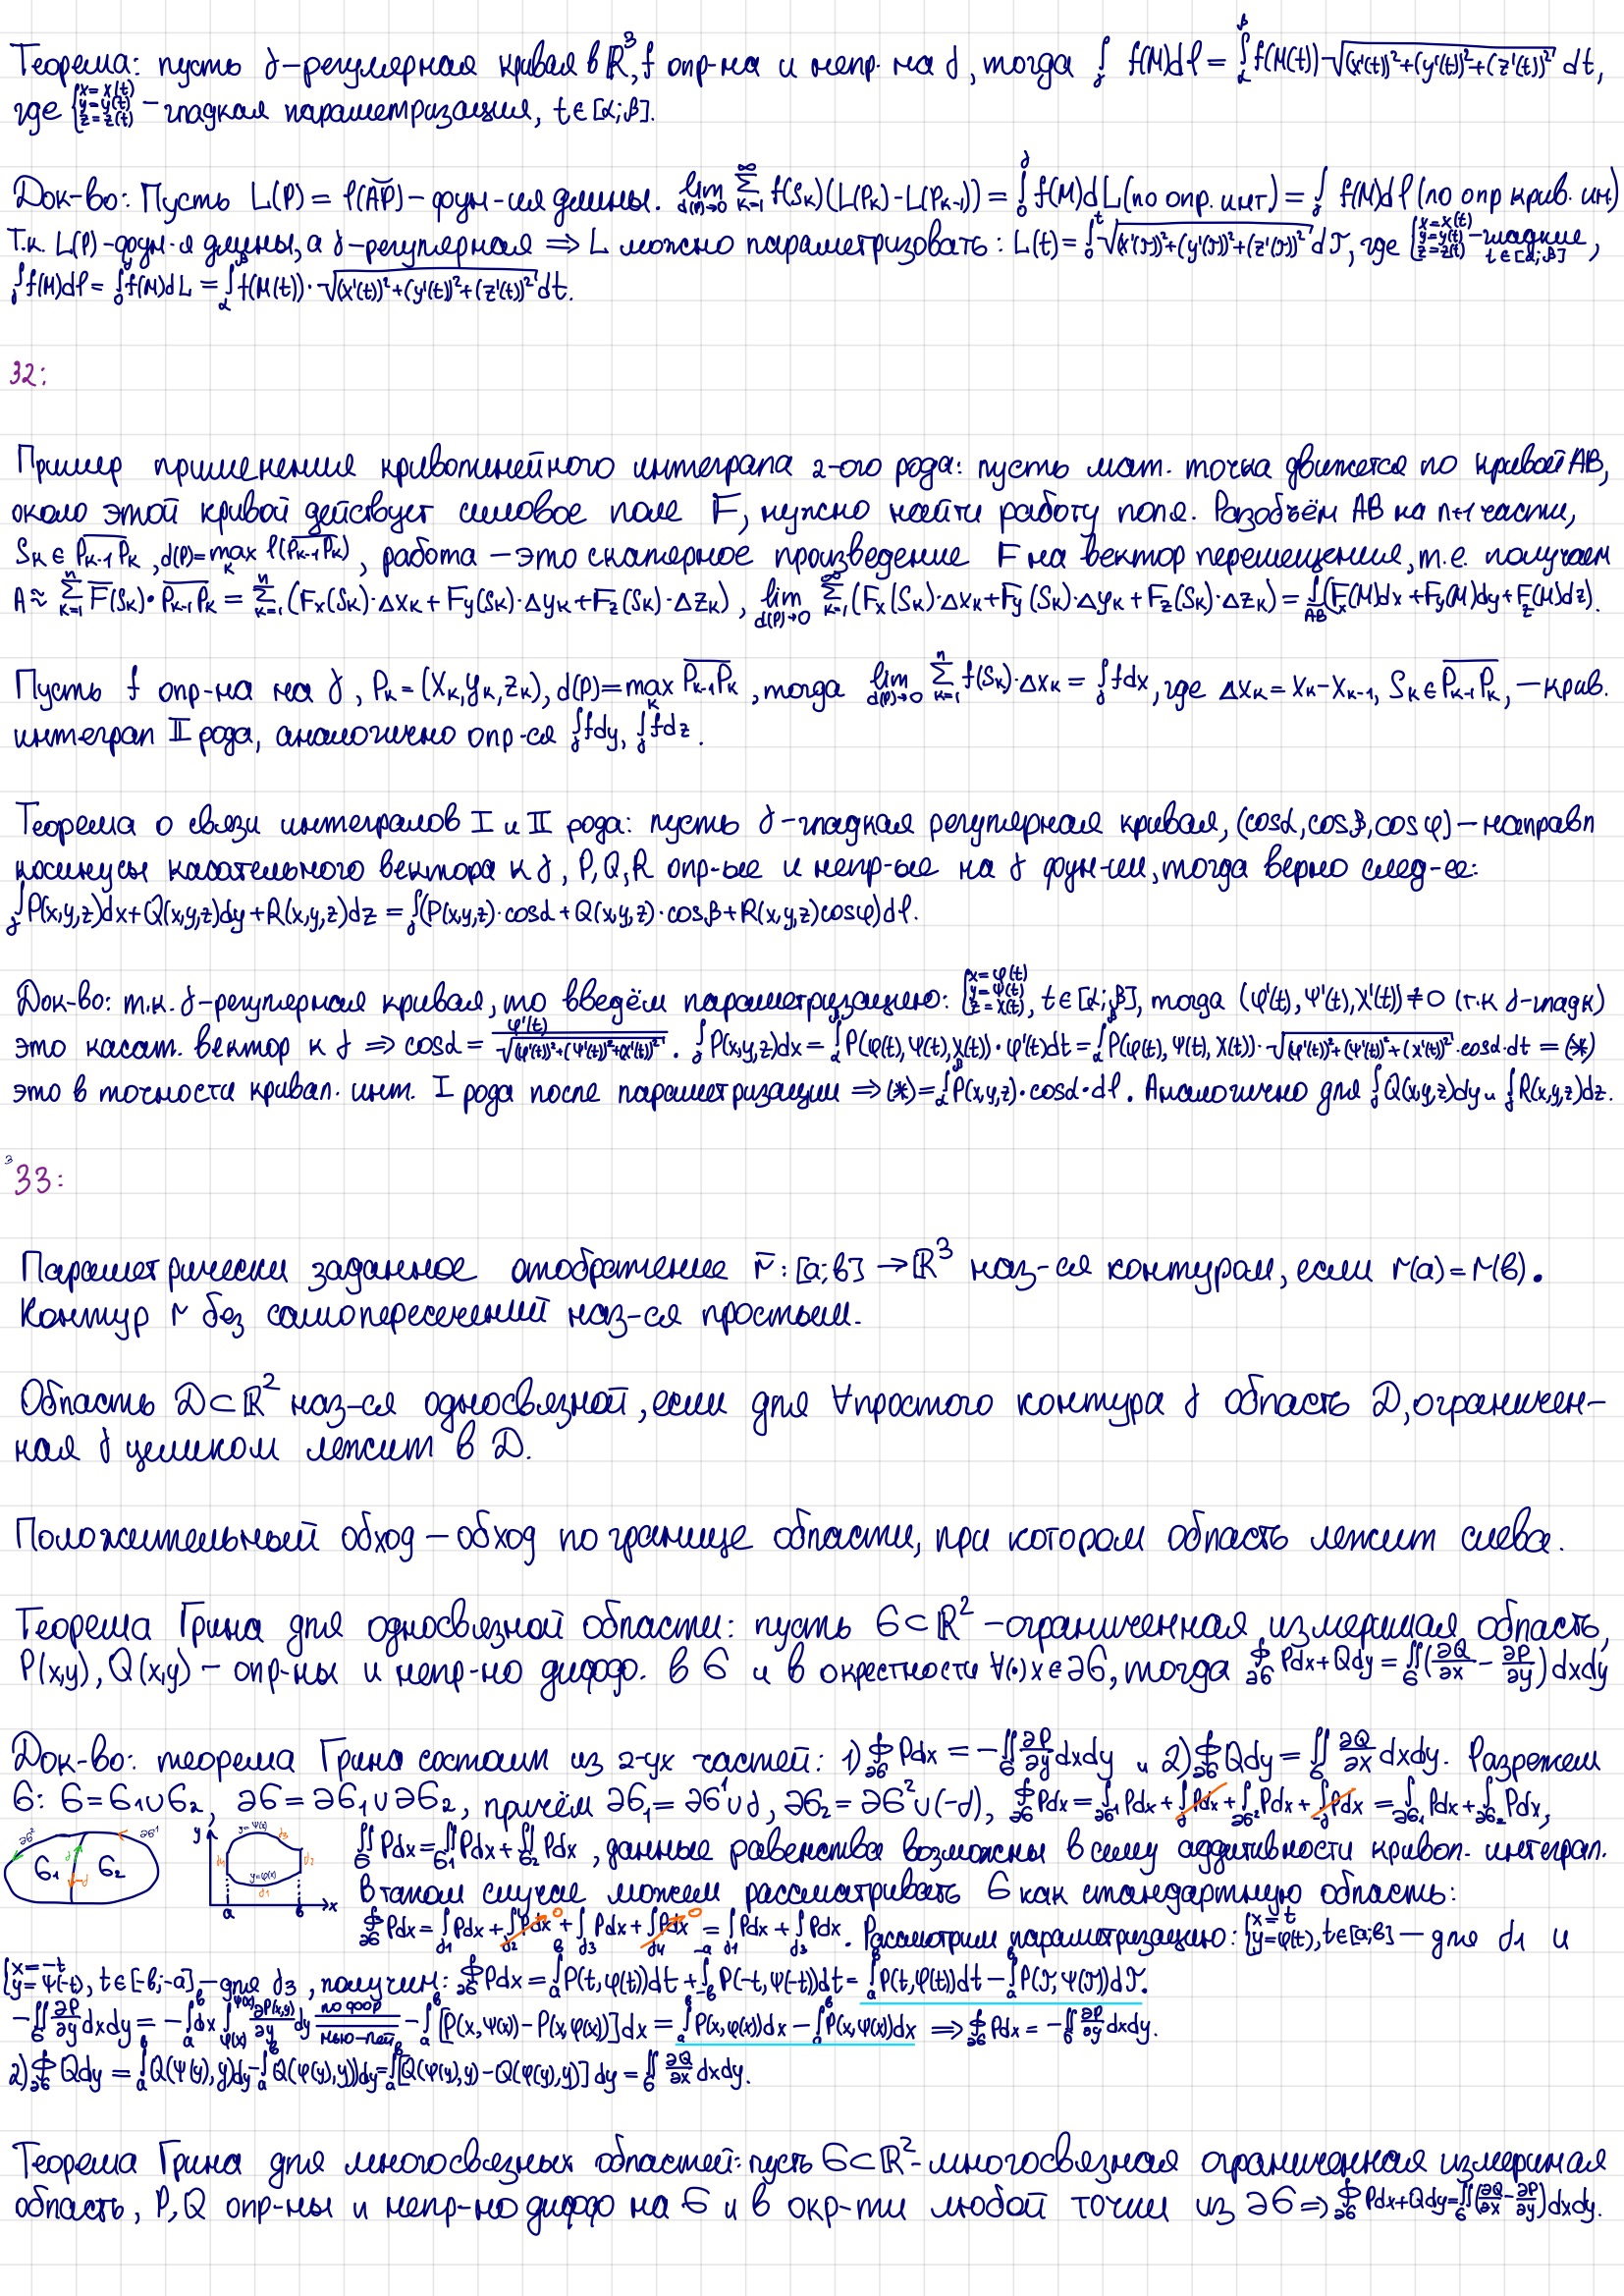 Теорема: пусть γ-регулярная кривая в ℝ³, f опр-на и непр. на γ, тогда ∫_γ f(M)dl = ∫_α^β f(M(t))·√((x'(t))²+(y'(t))²+(z'(t))²) dt,
где {x=x(t) y=y(t) z=z(t) – гладкая параметризация, t∈[α;β].
Док-во: Пусть L(P) = l(AP) – фун-ия длины. lim_{d(P)→0} Σ_{k=1}^∞ f(S_k)(L(P_k)-L(P_{k-1})) = ∫_0^γ f(M)dL (по опр. инт.) = ∫_γ f(M)dl (по опр крив. ин)
Т.к. L(P)-фун-я длины, а γ-регулярная ⇒ L можно параметризовать: L(t) = ∫_0^t √((x'(τ))²+(y'(τ))²+(z'(τ))²) dτ, где {x=x(t) y=y(t) z=z(t) – гладкие, t∈[α;β]
∫_γ f(M)dl = ∫_0^γ f(M)dL = ∫_α^β f(M(t))·√((x'(t))²+(y'(t))²+(z'(t))²) dt.
32:
Пример применения криволинейного интеграла 2-ого рода: пусть мат. точка движется по кривой AB,
около этой кривой действует силовое поле F, нужно найти работу поля. Разобьём AB на n+1 части,
S_k ∈ P_{k-1}P_k, d(P)=max_k l(P_{k-1}P_k), работа – это скалярное произведение F на вектор перемещения, т.е. получаем
A ≈ Σ_{k=1}^n F(S_k)·P_{k-1}P_k = Σ_{k=1}^n (F_x(S_k)·Δx_k + F_y(S_k)·Δy_k + F_z(S_k)·Δz_k), lim_{d(P)→0} Σ_{k=1}^∞ (F_x(S_k)·Δx_k + F_y(S_k)·Δy_k + F_z(S_k)·Δz_k) = ∫_{AB} (F_x(M)dx + F_y(M)dy + F_z(M)dz).
Пусть f опр-на на γ, P_k = (x_k, y_k, z_k), d(P)=max_k P_{k-1}P_k, тогда lim_{d(P)→0} Σ_{k=1}^n f(S_k)·Δx_k = ∫_γ fdx, где Δx_k = x_k-x_{k-1}, S_k ∈ P_{k-1}P_k, – крив.
интеграл II рода, аналогично опр-ся ∫_γ fdy, ∫_γ fdz.
Теорема о связи интегралов I и II рода: пусть γ-гладкая регулярная кривая, (cosα, cosβ, cosφ) – направл
косинусы касательного вектора к γ, P, Q, R опр-ые и непр-ые на γ фун-ии, тогда верно след-ее:
∫_γ P(x,y,z)dx+Q(x,y,z)dy+R(x,y,z)dz = ∫_γ (P(x,y,z)·cosα+Q(x,y,z)·cosβ+R(x,y,z)cosφ)dl.
Док-во: т.к. γ-регулярная кривая, то введём параметризацию: {x=φ(t) y=ψ(t) z=χ(t), t∈[α;β], тогда (φ'(t), ψ'(t), χ'(t)) ≠ 0 (т.к γ-гладк)
это касат. вектор к γ ⇒ cosα = φ'(t)/√((φ'(t))²+(ψ'(t))²+(χ'(t))²). ∫_γ P(x,y,z)dx = ∫_α^β P(φ(t), ψ(t), χ(t))·φ'(t)dt = ∫_α^β P(φ(t), ψ(t), χ(t))·√((φ'(t))²+(ψ'(t))²+(χ'(t))²)·cosα·dt = (*)
это в точности кривал. инт. I рода после параметризации ⇒ (*) = ∫_α^β P(x,y,z)·cosα·dl. Аналогично для ∫_γ Q(x,y,z)dy и ∫_γ R(x,y,z)dz.
3
33:
Параметрически заданное отображение r̄: [a;b] → ℝ³ наз-ся контуром, если r(a)=r(b).
Контур r без самопересечений наз-ся простым.
Область D⊂ℝ² наз-ся односвязной, если для ∀простого контура γ область D, ограничен-
ная γ целиком лежит в D.
Положительный обход – обход по границе области, при котором область лежит слева.
Теорема Грина для односвязной области: пусть G⊂ℝ² – ограниченная, измеримая область,
P(x,y), Q(x,y) – опр-ны и непр-но дифф. в G и в окрестности ∀(·)x∈∂G, тогда ∮_{∂G} Pdx+Qdy = ∬_G (∂Q/∂x - ∂P/∂y) dxdy
Док-во: теорема Грина состоит из 2-ух частей: 1) ∮_{∂G} Pdx = -∬_G ∂P/∂y dxdy и 2) ∮_{∂G} Qdy = ∬_G ∂Q/∂x dxdy. Разрежем
G: G=G₁∪G₂, ∂G=∂G₁∪∂G₂, причём ∂G₁=∂G¹∪γ, ∂G₂=∂G²∪(-γ), ∮_{∂G} Pdx = ∫_{∂G¹} Pdx + ∫_γ Pdx + ∫_{∂G²} Pdx + ∫_γ Pdx = ∫_{∂G₁} Pdx + ∫_{∂G₂} Pdx,
∂G² γ -γ ∂G¹ G₁ G₂ y y=ψ(x) γ₃ γ₄ γ₂ y=φ(x) γ₁ a b x
∬_G Pdx = ∬_{G₁} Pdx + ∬_{G₂} Pdx, данные равенства возможны в силу аддитивности кривол. интеграл.
В таком случае можем рассматривать G как стандартную область:
∮_{∂G} Pdx = ∫_{γ₁} Pdx + ∫_{γ₂} Pdx 0 + ∫_{γ₃} Pdx + ∫_{γ₄} Pdx 0 = ∫_{γ₁} Pdx + ∫_{γ₃} Pdx. Рассмотрим параметризацию: {x=t y=φ(t), t∈[a;b] – для γ₁ и
{x=-t y=ψ(-t), t∈[-b;-a] – для γ₃, получим: ∮_{∂G} Pdx = ∫_a^b P(t,φ(t))dt + ∫_{-b}^{-a} P(-t,ψ(-t))dt = ∫_a^b P(t,φ(t))dt - ∫_a^b P(τ,ψ(τ))dτ.
-∬_G ∂P/∂y dxdy = -∫_a^b dx ∫_{φ(x)}^{ψ(x)} ∂P(x,y)/∂y dy = (по фор нью-лей) -∫_a^b [P(x,ψ(x)) - P(x,φ(x))]dx = ∫_a^b P(x,φ(x))dx - ∫_a^b P(x,ψ(x))dx ⇒ ∮_{∂G} Pdx = -∬_G ∂P/∂y dxdy.
2) ∮_{∂G} Qdy = ∫_a^b Q(ψ(y),y)dy - ∫_a^b Q(φ(y),y))dy = ∫_a^b [Q(φ(y),y) - Q(φ(y),y)] dy = ∬_G ∂Q/∂x dxdy.
Теорема Грина для многосвязных областей: пусть G⊂ℝ² – многосвязная ограниченная измеримая
область, P, Q опр-ны и непр-но дифф на G и в окр-ти любой точки из ∂G ⇒ ∮_{∂G} Pdx+Qdy = ∬_G (∂Q/∂x - ∂P/∂y) dxdy.